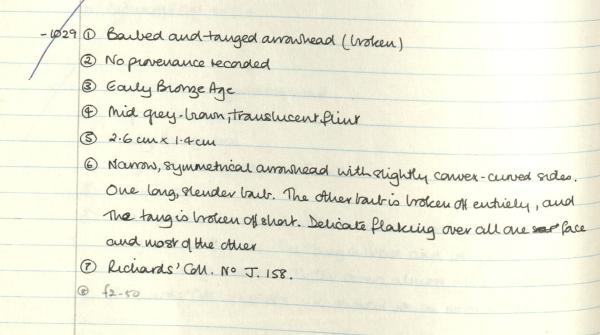 -1029 ① Barbed and-tanged arrowhead (broken)
② No provenance recorded
③ Early Bronze Age
④ Mid grey-brown, translucent flint
⑤ 2.6 cm x 1.4 cm
⑥ Narrow, symmetrical arrowhead with slightly convex-curved sides.
One long, slender barb. The other barb is broken off entirely, and
the tang is broken off short. Delicate flaking over all one face
and most of the other
⑦ Richards' Coll. No J. 158.
⑧ £2-50